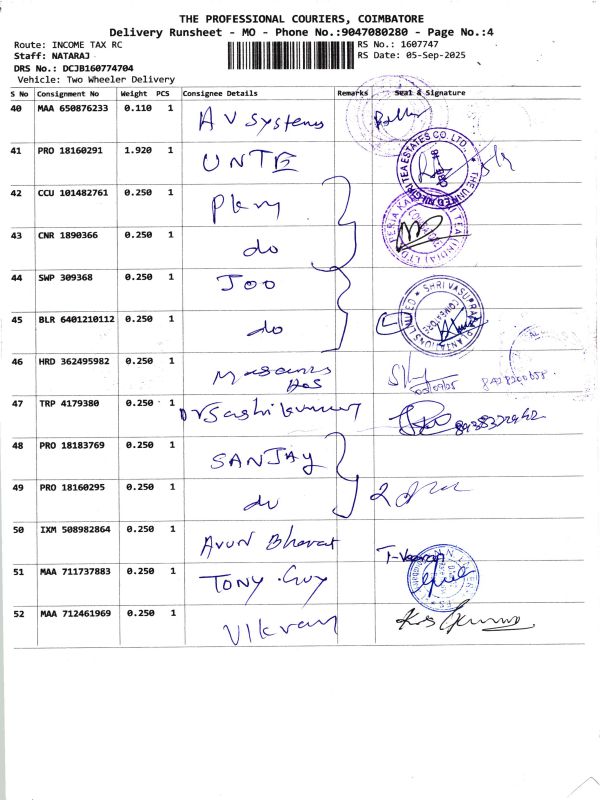 THE PROFESSIONAL COURIERS, COIMBATORE
Delivery Runsheet - MO - Phone No.:9047080280 - Page No.:4
Route: INCOME TAX RC RS No.: 1607747
Staff: NATARAJ RS Date: 05-Sep-2025
DRS No.: DCJB160774704
Vehicle: Two Wheeler Delivery
S No Consignment No Weight PCS Consignee Details Remarks Seal & Signature
40 MAA 650876233 0.110 1 A V Systems
41 PRO 18160291 1.920 1 UNTE
42 CCU 101482761 0.250 1
43 CNR 1890366 0.250 1 do
44 SWP 309368 0.250 1 JOO
45 BLR 6401210112 0.250 1 do
46 HRD 362495982 0.250 1
47 TRP 4179380 0.250 1 Dr Sashikumar
48 PRO 18183769 0.250 1 SANJAY
49 PRO 18160295 0.250 1 do
50 IXM 508982864 0.250 1 Arun Bharat
51 MAA 711737883 0.250 1 TONY.GUY
52 MAA 712461969 0.250 1 Vikram